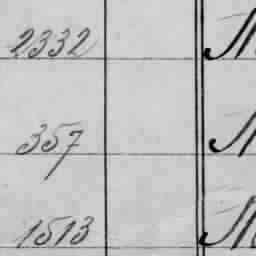 2332
357
1513